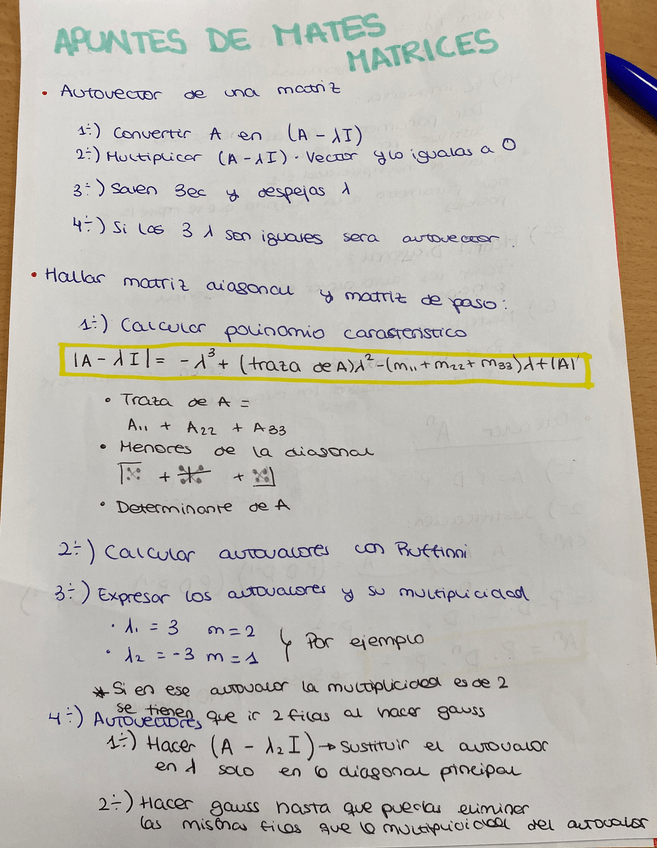 APUNTES DE MATES
MATRICES
• Autovector de una matriz
1÷) Convertir A en (A - λI)
2÷) Multiplicar (A - λI) · Vector y lo igualas a 0
3÷) Salen 3ec y despejas λ
4÷) Si los 3 λ son iguales sera autovector.
• Hallar matriz diagonal y matriz de paso:
1÷) Calcular polinomio caracteristico
|A - λI| = -λ³ + (traza de A)λ² - (m₁₁ + m₂₂ + m₃₃)λ + |A|
• Traza de A =
A₁₁ + A₂₂ + A₃₃
• Menores de la diagonal
+ +
• Determinante de A
2÷) Calcular autovalores con Ruffinni
3÷) Expresar los autovalores y su multiplicidad
• λ₁ = 3 m = 2
• λ₂ = -3 m = 1 } Por ejemplo
* Si en ese autovalor la multiplicidad es de 2
se tienen que ir 2 filas al hacer gauss
4÷) Autovectores
1÷) Hacer (A - λ₂I) → Sustituir el autovalor
en λ solo en la diagonal principal
2÷) Hacer gauss hasta que puedas eliminar
las mismas filas que la multiplicidad del autovalor